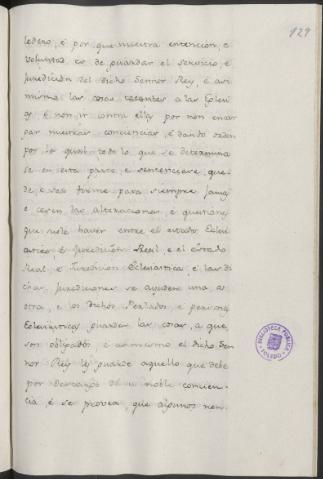 129
ledero, é por que nuestra entencion, e
voluntad es de guardar el servicio, é
Juredicion del dicho Sennor Rey, é asi
mismo las cosas tocantes a las Eglesi
as é non ir contra ellas por non encar
gar nuestras conciencias, é dando orden
por lo qual todo lo que se determina
se en esta parte, e sentenciare, que-
de, e sea firme para siempre jamas
e cesen las altercaciones, é questiones
que suele haver entre el estado Eclesi
astico, é Juredicion Real, e el Estado
Real, é Juredicion Eclesiastica, é las di
chas Jurediciones se ayuden una, a
otra, e los dichos Perlados, é personas
Eclesiasticas, guarden las cosas, a que,
son obligados é asimesmo el dicho Sen
nor Rey les guarde aquello que debe
por descargo de su noble concien-
cia, é se provea, que algunos non
BIBLIOTECA PUBLICA
TOLEDO